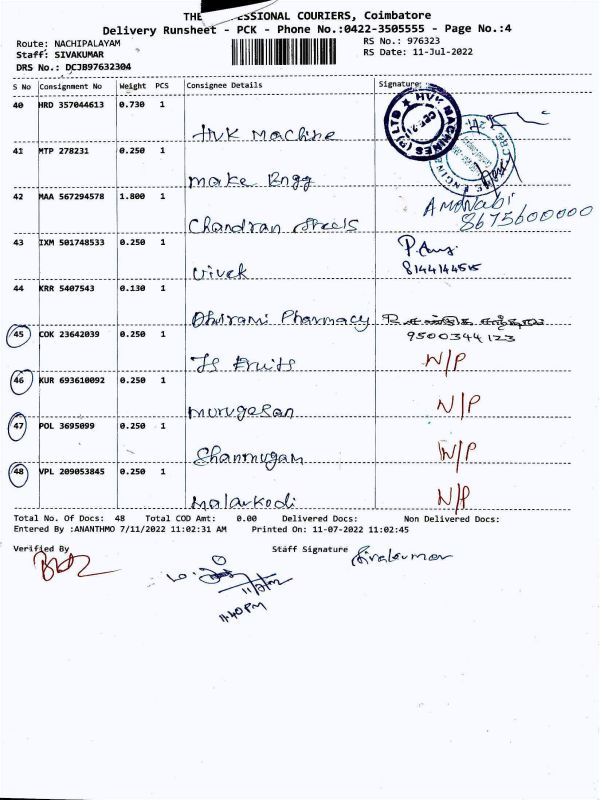 THE PROFESSIONAL COURIERS, Coimbatore
Delivery Runsheet - PCK - Phone No.:0422-3505555 - Page No.:4
Route: NACHIPALAYAM RS No.: 976323
Staff: SIVAKUMAR RS Date: 11-Jul-2022
DRS No.: DCJB97632304
S No Consignment No Weight PCS Consignee Details Signature
40 HRD 357044613 0.730 1
HVK Machine
41 MTP 278231 0.250 1
make Engg
42 MAA 567294578 1.800 1
Chandran steels
8675600000
43 IXM 501748533 0.250 1
vivek
8144144515
44 KRR 5407543 0.130 1
Abirami Pharmacy
9500344123
45 COK 23642039 0.250 1
JS Fruits N/P
46 KUR 693610092 0.250 1
murugesan N/P
47 POL 3695099 0.250 1
Shanmugam N/P
48 VPL 209053845 0.250 1
Malarkodi N/P
Total No. Of Docs: 48 Total COD Amt: 0.00 Delivered Docs: Non Delivered Docs:
Entered By :ANANTHMO 7/11/2022 11:02:31 AM Printed On: 11-07-2022 11:02:45
Verified By Staff Signature Sivakumar
11:40 PM